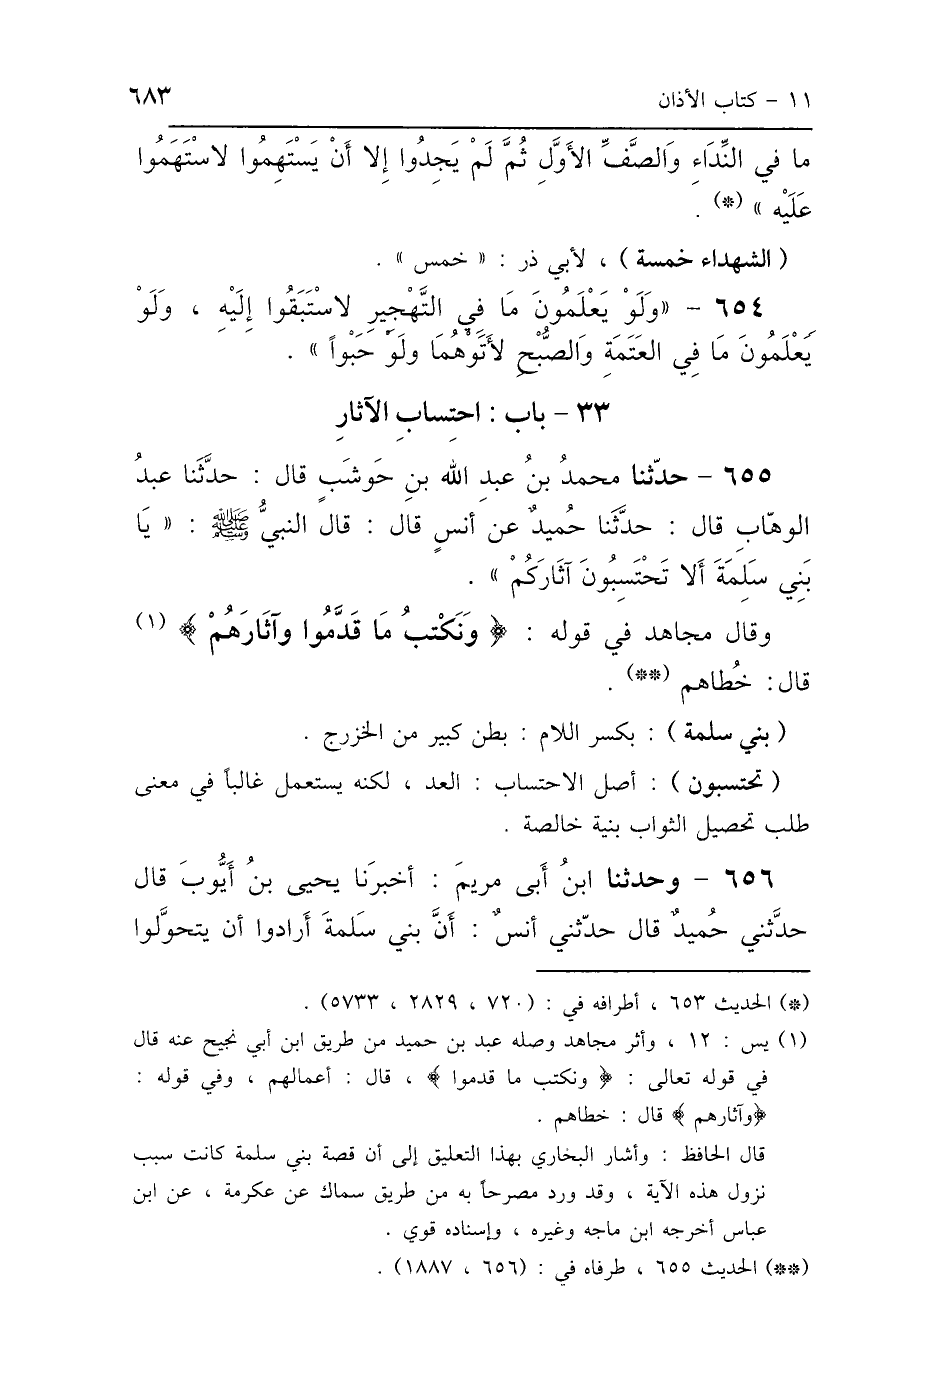 ١١ - كتاب الأذان ٦٨٣
ما في النِّدَاءِ وَالصَّفِّ الأوَّلِ ثُمَّ لَمْ يَجِدُوا إلا أَنْ يَسْتَهِمُوا لاسْتَهَمُوا
عَلَيْهِ » (*) .
( الشهداء خمسة ) ، لأبي ذر : « خمس » .
٦٥٤ - «وَلَوْ يَعْلَمُونَ مَا فِي التَّهْجِيرِ لاسْتَبَقُوا إِلَيْهِ ، وَلَوْ
يَعْلَمُونَ مَا فِي العَتَمَةِ وَالصُّبْحِ لأَتَوْهُمَا ولَوْ حَبْواً » .
٣٣ - باب : احتِسابِ الآثارِ
٦٥٥ - حدّثنا محمدُ بنُ عبدِ الله بنِ حَوشَبٍ قال : حدَّثَنا عبدُ
الوهّابِ قال : حدَّثَنا حُميدٌ عن أنسٍ قال : قال النبيُّ ﷺ : « يَا
بَنِي سَلِمَةَ أَلا تَحْتَسِبُونَ آثَارَكُمْ » .
وقال مجاهد في قوله : ﴿ وَنَكْتبُ مَا قَدَّمُوا وآثَارَهُمْ ﴾ (١)
قال: خُطاهم (**) .
( بني سلمة ) : بكسر اللام : بطن كبير من الخزرج .
( تحتسبون ) : أصل الاحتساب : العد ، لكنه يستعمل غالباً في معنى
طلب تحصيل الثواب بنية خالصة .
٦٥٦ - وحدثنا ابنُ أَبى مريمَ : أخبرَنا يحيى بنُ أَيُّوبَ قال
حدَّثني حُميدٌ قال حدّثني أنسٌ : أنَّ بني سَلمةَ أَرادوا أن يتحولَّوا
(*) الحديث ٦٥٣ ، أطرافه في : (٧٢٠ ، ٢٨٢٩ ، ٥٧٣٣) .
(١) يس : ١٢ ، وأثر مجاهد وصله عبد بن حميد من طريق ابن أبي نجيح عنه قال
في قوله تعالى : ﴿ ونكتب ما قدموا ﴾ ، قال : أعمالهم ، وفي قوله :
﴿وآثارهم ﴾ قال : خطاهم .
قال الحافظ : وأشار البخاري بهذا التعليق إلى أن قصة بني سلمة كانت سبب
نزول هذه الآية ، وقد ورد مصرحاً به من طريق سماك عن عكرمة ، عن ابن
عباس أخرجه ابن ماجه وغيره ، وإسناده قوي .
(**) الحديث ٦٥٥ ، طرفاه في : (٦٥٦ ، ١٨٨٧) .